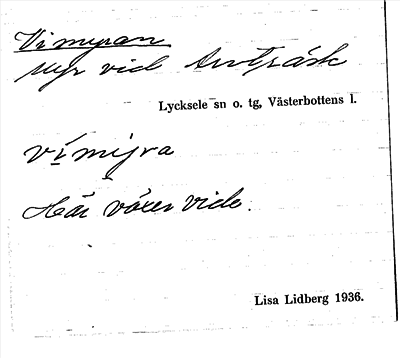 Vimyran
myr vid Arvträsk
Lycksele sn o. tg, Västerbottens l.
vímyra
Här växer vide.
Lisa Lidberg 1936.